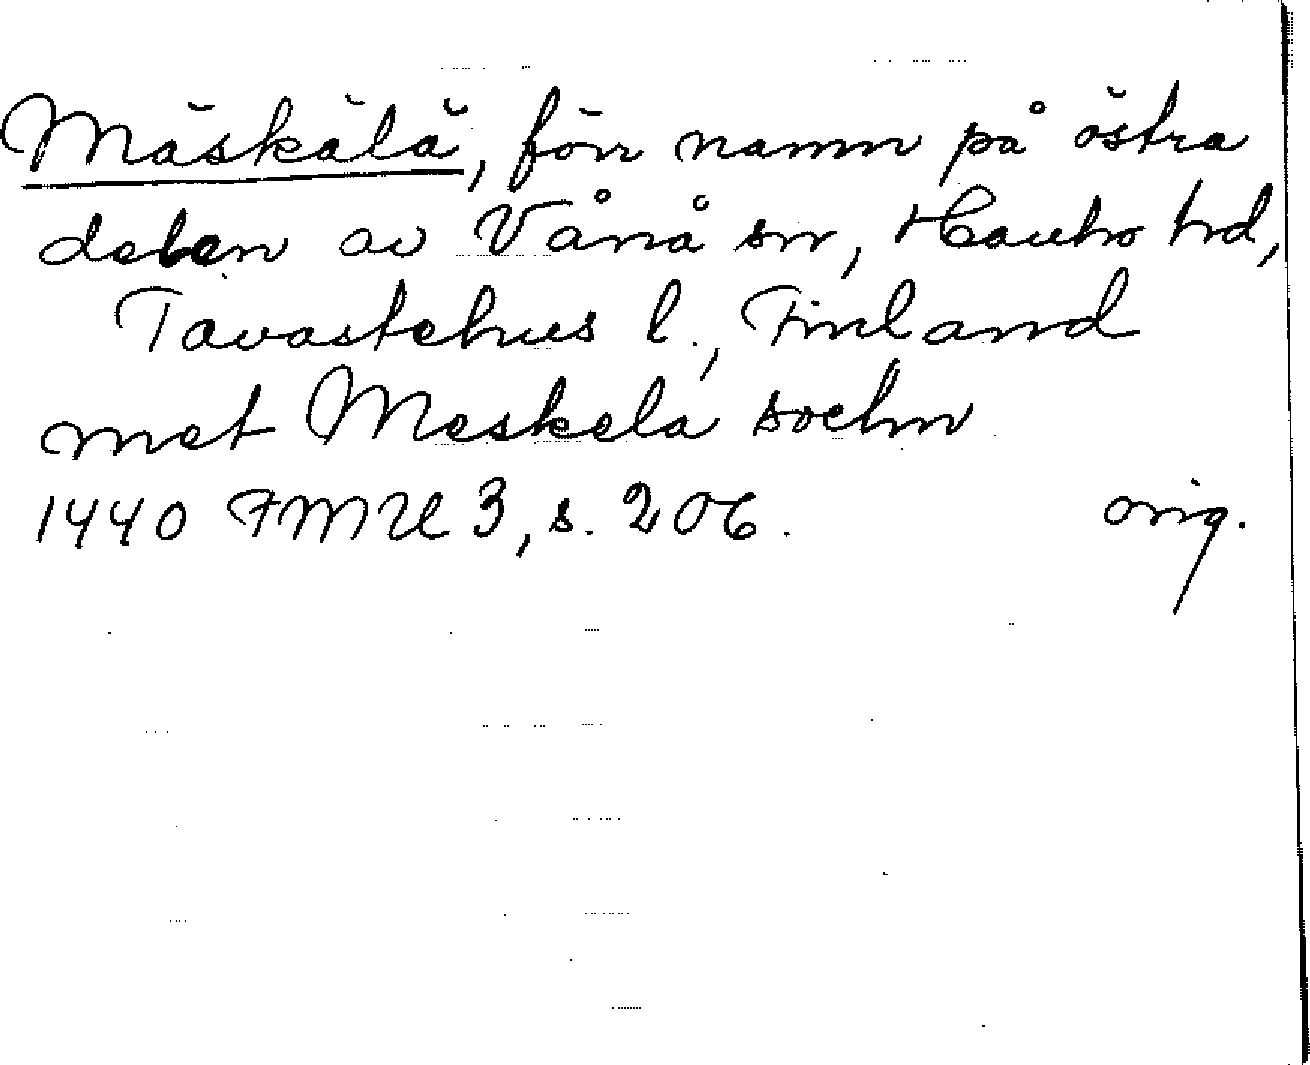 Mäskälä, förr namn på östra
delen av Vånå sn, Hauho hd,
Tavastehus l., Finland
met Meskela sochn
1440 FMU 3, s. 206. orig.